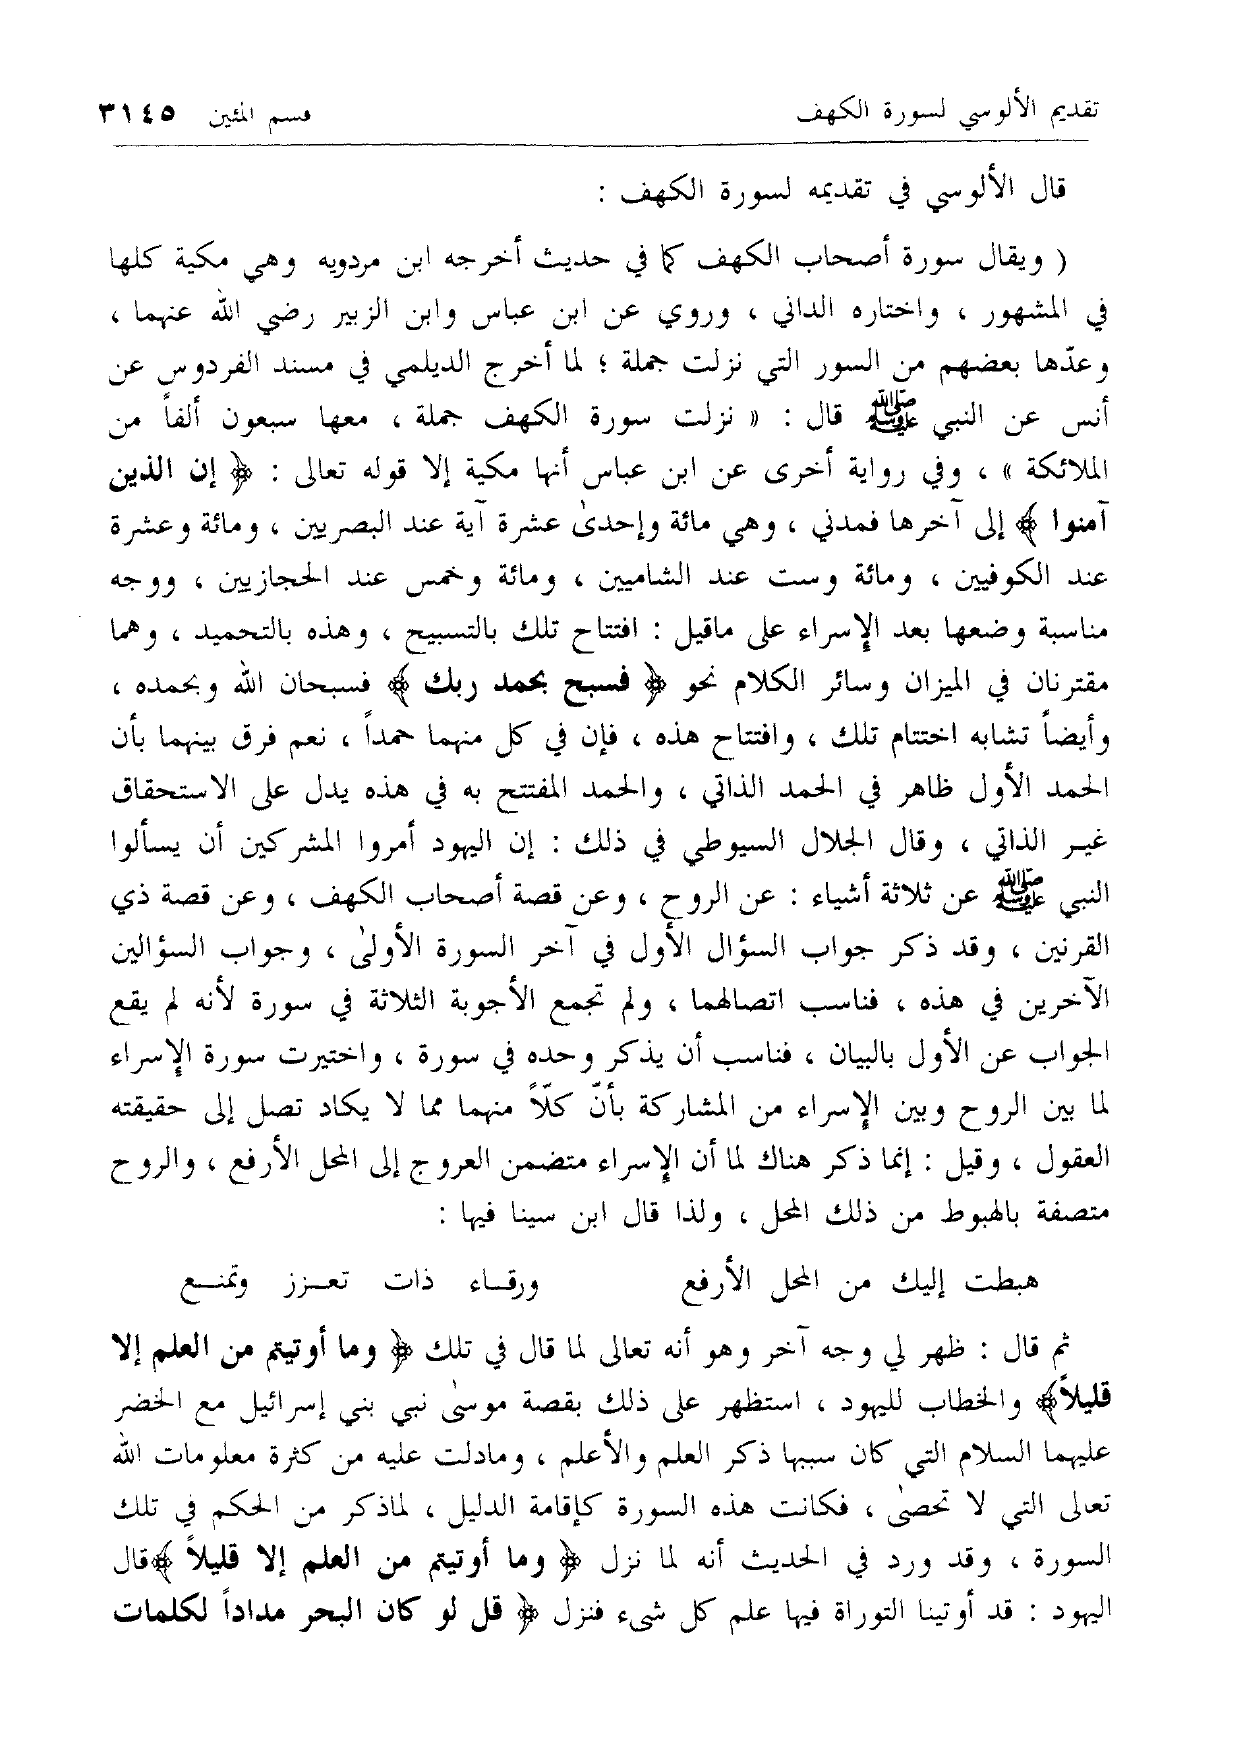 تقديم الألوسي لسورة الكهف قسم المئين ٣١٤٥
قال الألوسي في تقديمه لسورة الكهف :
( ويقال سورة أصحاب الكهف كما في حديث أخرجه ابن مردويه وهي مكية كلها
في المشهور ، واختاره الداني ، وروي عن ابن عباس وابن الزبير رضي الله عنهما ،
وعدّها بعضهم من السور التي نزلت جملة ؛ لما أخرج الديلمي في مسند الفردوس عن
أنس عن النبي ﷺ قال : « نزلت سورة الكهف جملة ، معها سبعون ألفاً من
الملائكة » ، وفي رواية أخرى عن ابن عباس أنها مكية إلا قوله تعالى : ﴿ إن الذين
آمنوا ﴾ إلى آخرها فمدني ، وهي مائة وإحدىٰ عشرة آية عند البصريين ، ومائة وعشرة
عند الكوفيين ، ومائة وست عند الشاميين ، ومائة وخمس عند الحجازيين ، ووجه
مناسبة وضعها بعد الإسراء على ماقيل : افتتاح تلك بالتسبيح ، وهذه بالتحميد ، وهما
مقترنان في الميزان وسائر الكلام نحو ﴿ فسبح بحمد ربك ﴾ فسبحان الله وبحمده ،
وأيضاً تشابه اختتام تلك ، وافتتاح هذه ، فإن في كل منهما حمداً ، نعم فرق بينهما بأن
الحمد الأول ظاهر في الحمد الذاتي ، والحمد المفتتح به في هذه يدل على الاستحقاق
غير الذاتي ، وقال الجلال السيوطي في ذلك : إن اليهود أمروا المشركين أن يسألوا
النبي ﷺ عن ثلاثة أشياء : عن الروح ، وعن قصة أصحاب الكهف ، وعن قصة ذي
القرنين ، وقد ذكر جواب السؤال الأول في آخر السورة الأولىٰ ، وجواب السؤالين
الآخرين في هذه ، فناسب اتصالهما ، ولم تجمع الأجوبة الثلاثة في سورة لأنه لم يقع
الجواب عن الأول بالبيان ، فناسب أن يذكر وحده في سورة ، واختيرت سورة الإسراء
لما بين الروح وبين الإسراء من المشاركة بأنّ كلّاً منهما مما لا يكاد تصل إلى حقيقته
العقول ، وقيل : إنما ذكر هناك لما أن الإسراء متضمن العروج إلى المحل الأرفع ، والروح
متصفة بالهبوط من ذلك المحل ، ولذا قال ابن سينا فيها :
هبطت إليك من المحل الأرفع ورقاء ذات تعزز وتمنع
ثم قال : ظهر لي وجه آخر وهو أنه تعالى لما قال في تلك ﴿ وما أوتيتم من العلم إلا
قليلاً﴾ والخطاب لليهود ، استظهر على ذلك بقصة موسىٰ نبي بني إسرائيل مع الخضر
عليهما السلام التي كان سببها ذكر العلم والأعلم ، ومادلت عليه من كثرة معلومات الله
تعالى التي لا تحصىٰ ، فكانت هذه السورة كإقامة الدليل ، لماذكر من الحكم في تلك
السورة ، وقد ورد في الحديث أنه لما نزل ﴿ وما أوتيتم من العلم إلا قليلاً ﴾قال
اليهود : قد أوتينا التوراة فيها علم كل شىء فنزل ﴿ قل لو كان البحر مداداً لكلمات